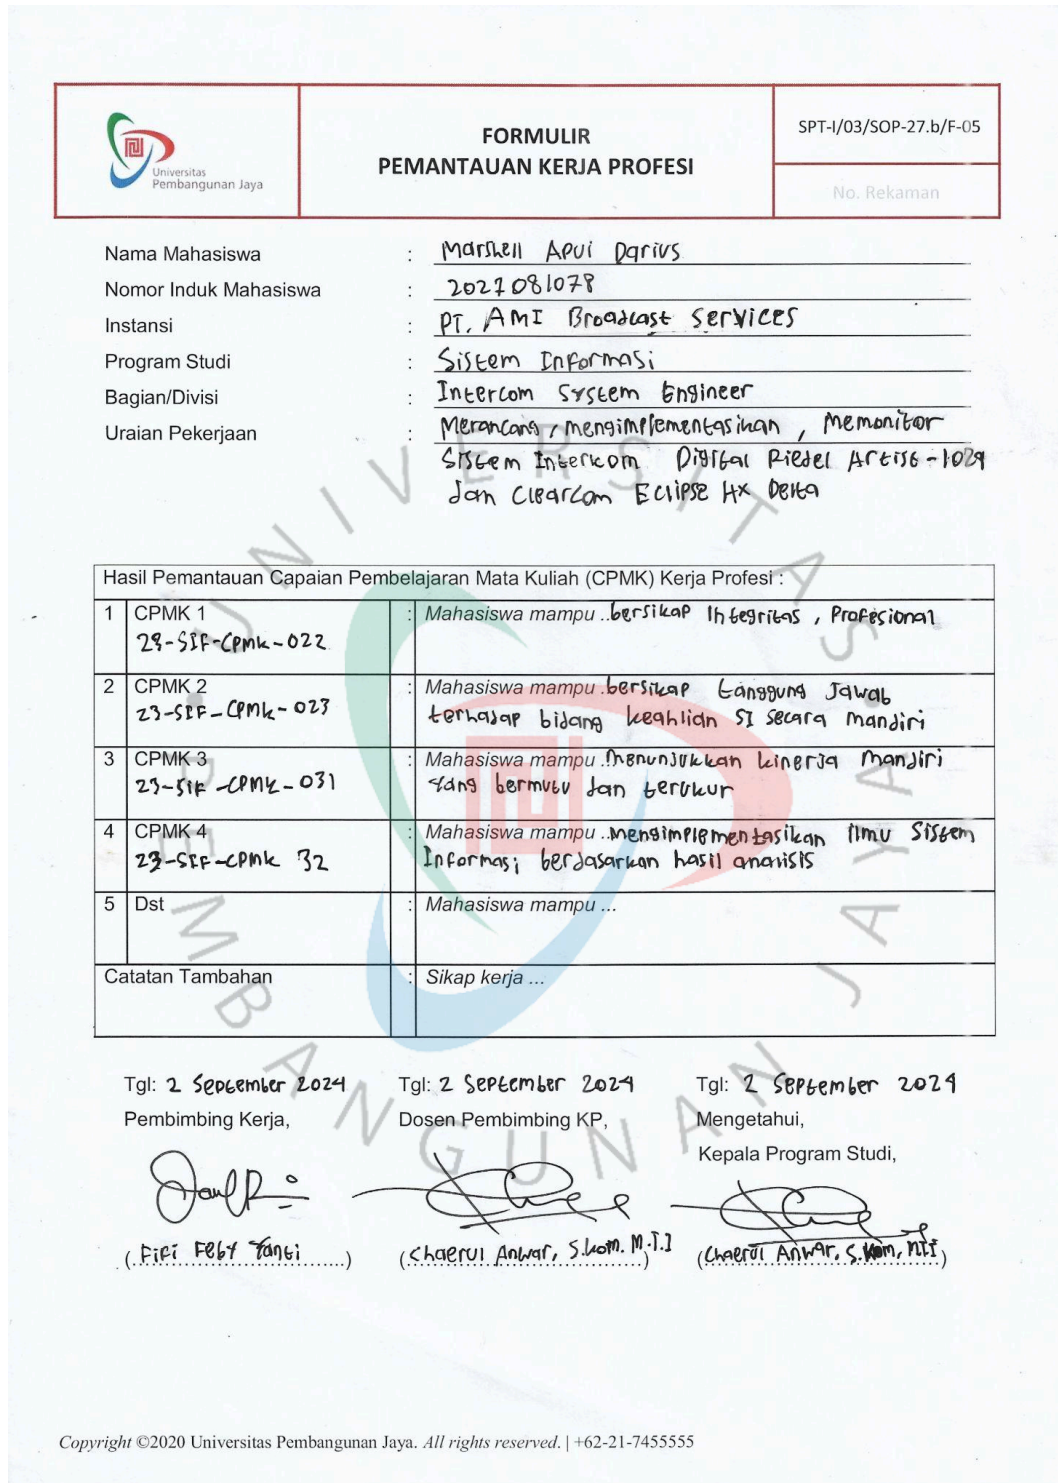 Universitas
Pembangunan Jaya
FORMULIR
PEMANTAUAN KERJA PROFESI
SPT-I/03/SOP-27.b/F-05
No. Rekaman
Nama Mahasiswa : Marshell Apui Darius
Nomor Induk Mahasiswa : 2021081078
Instansi : PT. AMI Broadcast Services
Program Studi : Sistem Informasi
Bagian/Divisi : Intercom System Engineer
Uraian Pekerjaan : Merancang, mengimplementasikan, Memonitor
Sistem Interkom Digital Riedel Artist-1024
dan Clearcom Eclipse HX Delta
Hasil Pemantauan Capaian Pembelajaran Mata Kuliah (CPMK) Kerja Profesi :
1 CPMK 1 : Mahasiswa mampu ..bersikap Integritas, Profesional
23-SIF-CPMK-022
2 CPMK 2 : Mahasiswa mampu .bersikap tanggung Jawab
23-SIF-CPMK-023 terhadap bidang keahlian SI secara mandiri
3 CPMK 3 : Mahasiswa mampu ..Menunjukkan kinerja Mandiri
23-SIF-CPMK-031 yang bermutu dan terukur
4 CPMK 4 : Mahasiswa mampu ..mengimplementasikan ilmu Sistem
23-SIF-CPMK 32 Informasi berdasarkan hasil analisis
5 Dst : Mahasiswa mampu ...
Catatan Tambahan : Sikap kerja ...
Tgl: 2 September 2024 Tgl: 2 September 2024 Tgl: 2 September 2024
Pembimbing Kerja, Dosen Pembimbing KP, Mengetahui,
Kepala Program Studi,
(Fifi Feby Yanti) (Chaerul Anwar, S.kom. M.T.I) (Chaerul Anwar, S.Kom, MTI)
UNIVERSITAS PEMBANGUNAN JAYA
Copyright ©2020 Universitas Pembangunan Jaya. All rights reserved. | +62-21-7455555